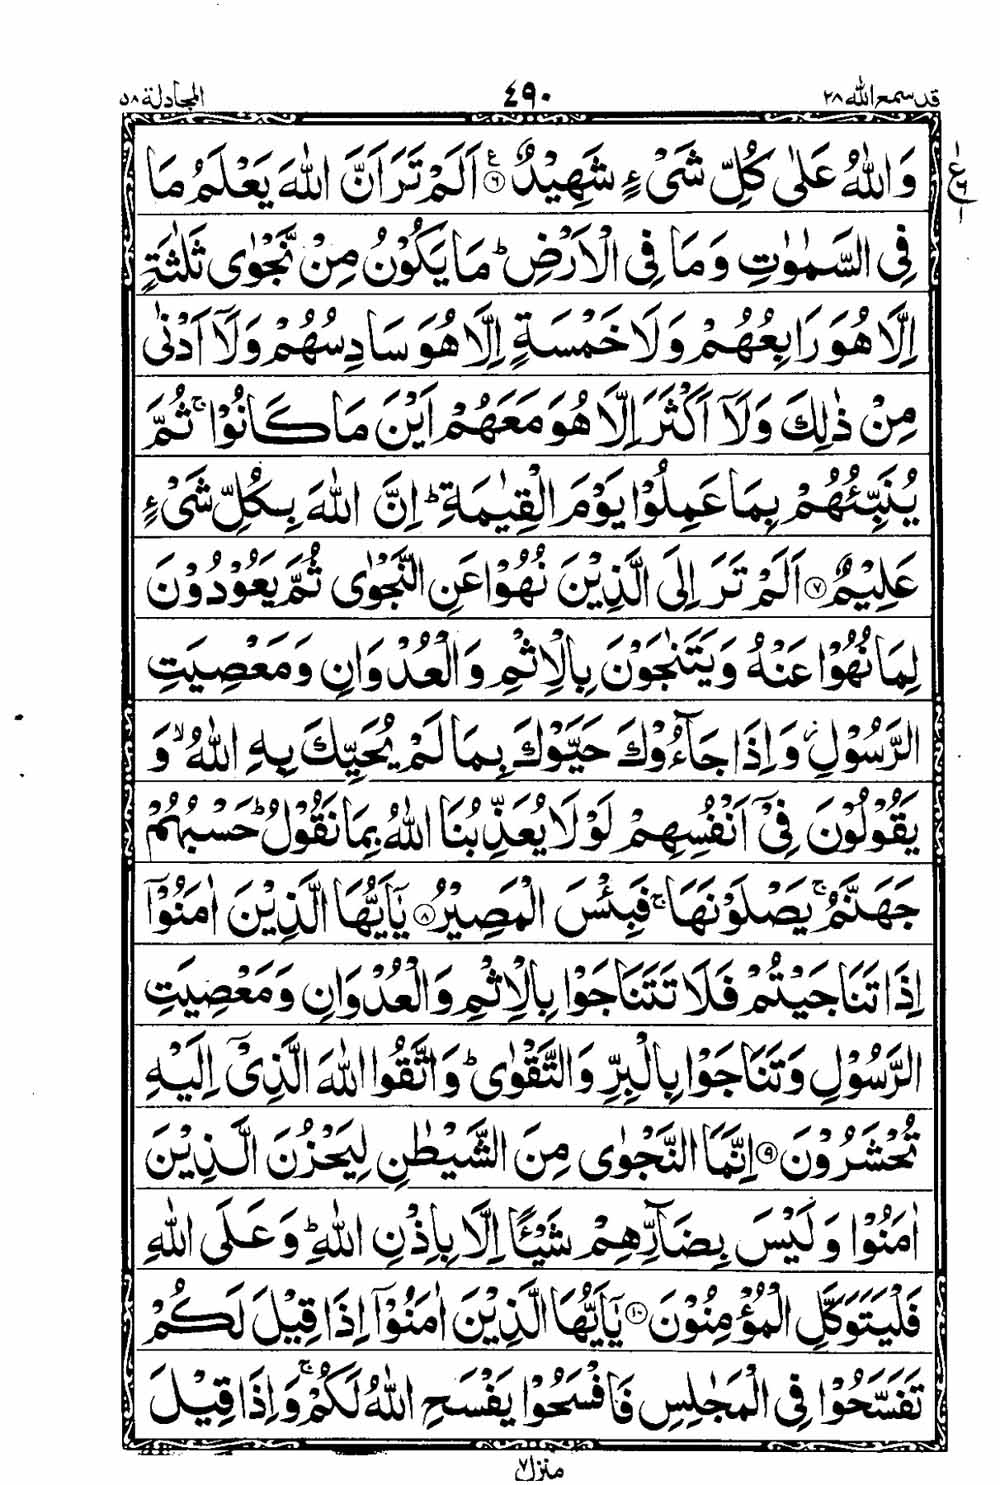 قد سمع الله ٢٨
٤٩٠
المجادلة ٥٨
وَاللّٰهُ عَلٰى كُلِّ شَىْءٍ شَهِيْدٌ ۧ ﴿۶﴾ اَلَمْ تَرَ اَنَّ اللّٰهَ يَعْلَمُ مَا
فِى السَّمٰوٰتِ وَمَا فِى الْاَرْضِ ؕ مَا يَكُوْنُ مِنْ نَّجْوٰى ثَلٰثَةٍ
اِلَّا هُوَ رَابِعُهُمْ وَلَا خَمْسَةٍ اِلَّا هُوَ سَادِسُهُمْ وَلَاۤ اَدْنٰى
مِنْ ذٰلِكَ وَلَاۤ اَكْثَرَ اِلَّا هُوَ مَعَهُمْ اَيْنَ مَا كَانُوْا ۚ ثُمَّ
يُنَبِّئُهُمْ بِمَا عَمِلُوْا يَوْمَ الْقِيٰمَةِ ؕ اِنَّ اللّٰهَ بِكُلِّ شَىْءٍ
عَلِيْمٌ ﴿۷﴾ اَلَمْ تَرَ اِلَى الَّذِيْنَ نُهُوْا عَنِ النَّجْوٰى ثُمَّ يَعُوْدُوْنَ
لِمَا نُهُوْا عَنْهُ وَيَتَنٰجَوْنَ بِالْاِثْمِ وَالْعُدْوَانِ وَمَعْصِيَتِ
الرَّسُوْلِ ؗ وَاِذَا جَآءُوْكَ حَيَّوْكَ بِمَا لَمْ يُحَيِّكَ بِهِ اللّٰهُ ۙ وَ
يَقُوْلُوْنَ فِىْۤ اَنْفُسِهِمْ لَوْلَا يُعَذِّبُنَا اللّٰهُ بِمَا نَقُوْلُ ؕ حَسْبُهُمْ
جَهَنَّمُ ۚ يَصْلَوْنَهَا ۚ فَبِئْسَ الْمَصِيْرُ ﴿۸﴾ يٰۤاَيُّهَا الَّذِيْنَ اٰمَنُوْۤا
اِذَا تَنَاجَيْتُمْ فَلَا تَتَنَاجَوْا بِالْاِثْمِ وَالْعُدْوَانِ وَمَعْصِيَتِ
الرَّسُوْلِ وَتَنَاجَوْا بِالْبِرِّ وَالتَّقْوٰى ؕ وَاتَّقُوا اللّٰهَ الَّذِىْۤ اِلَيْهِ
تُحْشَرُوْنَ ﴿۹﴾ اِنَّمَا النَّجْوٰى مِنَ الشَّيْطٰنِ لِيَحْزُنَ الَّذِيْنَ
اٰمَنُوْا وَلَيْسَ بِضَآرِّهِمْ شَيْـًٔا اِلَّا بِاِذْنِ اللّٰهِ ؕ وَعَلَى اللّٰهِ
فَلْيَتَوَكَّلِ الْمُؤْمِنُوْنَ ﴿۱۰﴾ يٰۤاَيُّهَا الَّذِيْنَ اٰمَنُوْۤا اِذَا قِيْلَ لَكُمْ
تَفَسَّحُوْا فِى الْمَجٰلِسِ فَافْسَحُوْا يَفْسَحِ اللّٰهُ لَكُمْ ۚ وَاِذَا قِيْلَ
منزل ٧